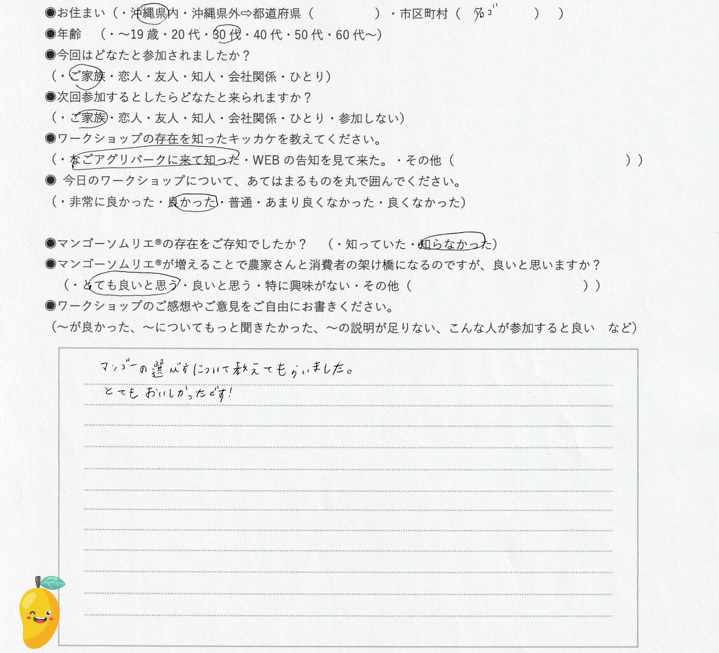 ◉お住まい（・沖縄県内・沖縄県外⇨都道府県（　　　　　）・市区町村（　ナゴ　　）　）
◉年齢　（・〜19 歳・20 代・30 代・40 代・50 代・60 代〜）
◉今回はどなたと参加されましたか？
（・ご家族・恋人・友人・知人・会社関係・ひとり）
◉次回参加するとしたらどなたと来られますか？
（・ご家族・恋人・友人・知人・会社関係・ひとり・参加しない）
◉ワークショップの存在を知ったキッカケを教えてください。
（・なごアグリパークに来て知った・WEB の告知を見て来た。・その他（　　　　　　　　　　　　））
◉ 今日のワークショップについて、あてはまるものを丸で囲んでください。
（・非常に良かった・良かった・普通・あまり良くなかった・良くなかった）
◉マンゴーソムリエ®の存在をご存知でしたか？　（・知っていた・知らなかった）
◉マンゴーソムリエ®が増えることで農家さんと消費者の架け橋になるのですが、良いと思いますか？
（・とても良いと思う・良いと思う・特に興味がない・その他（　　　　　　　　　　　　））
◉ワークショップのご感想やご意見をご自由にお書きください。
（〜が良かった、〜についてもっと聞きたかった、〜の説明が足りない、こんな人が参加すると良い　など）
マンゴーの選び方について教えてもらいました。
とても おいしかったです!